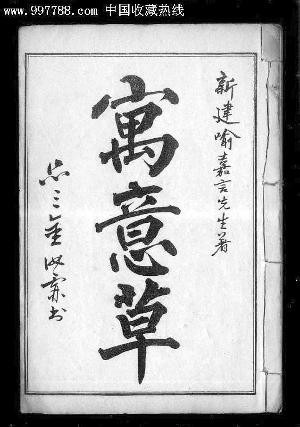 www.997788.com 中国收藏热线
新建喻嘉言先生著
寓意草